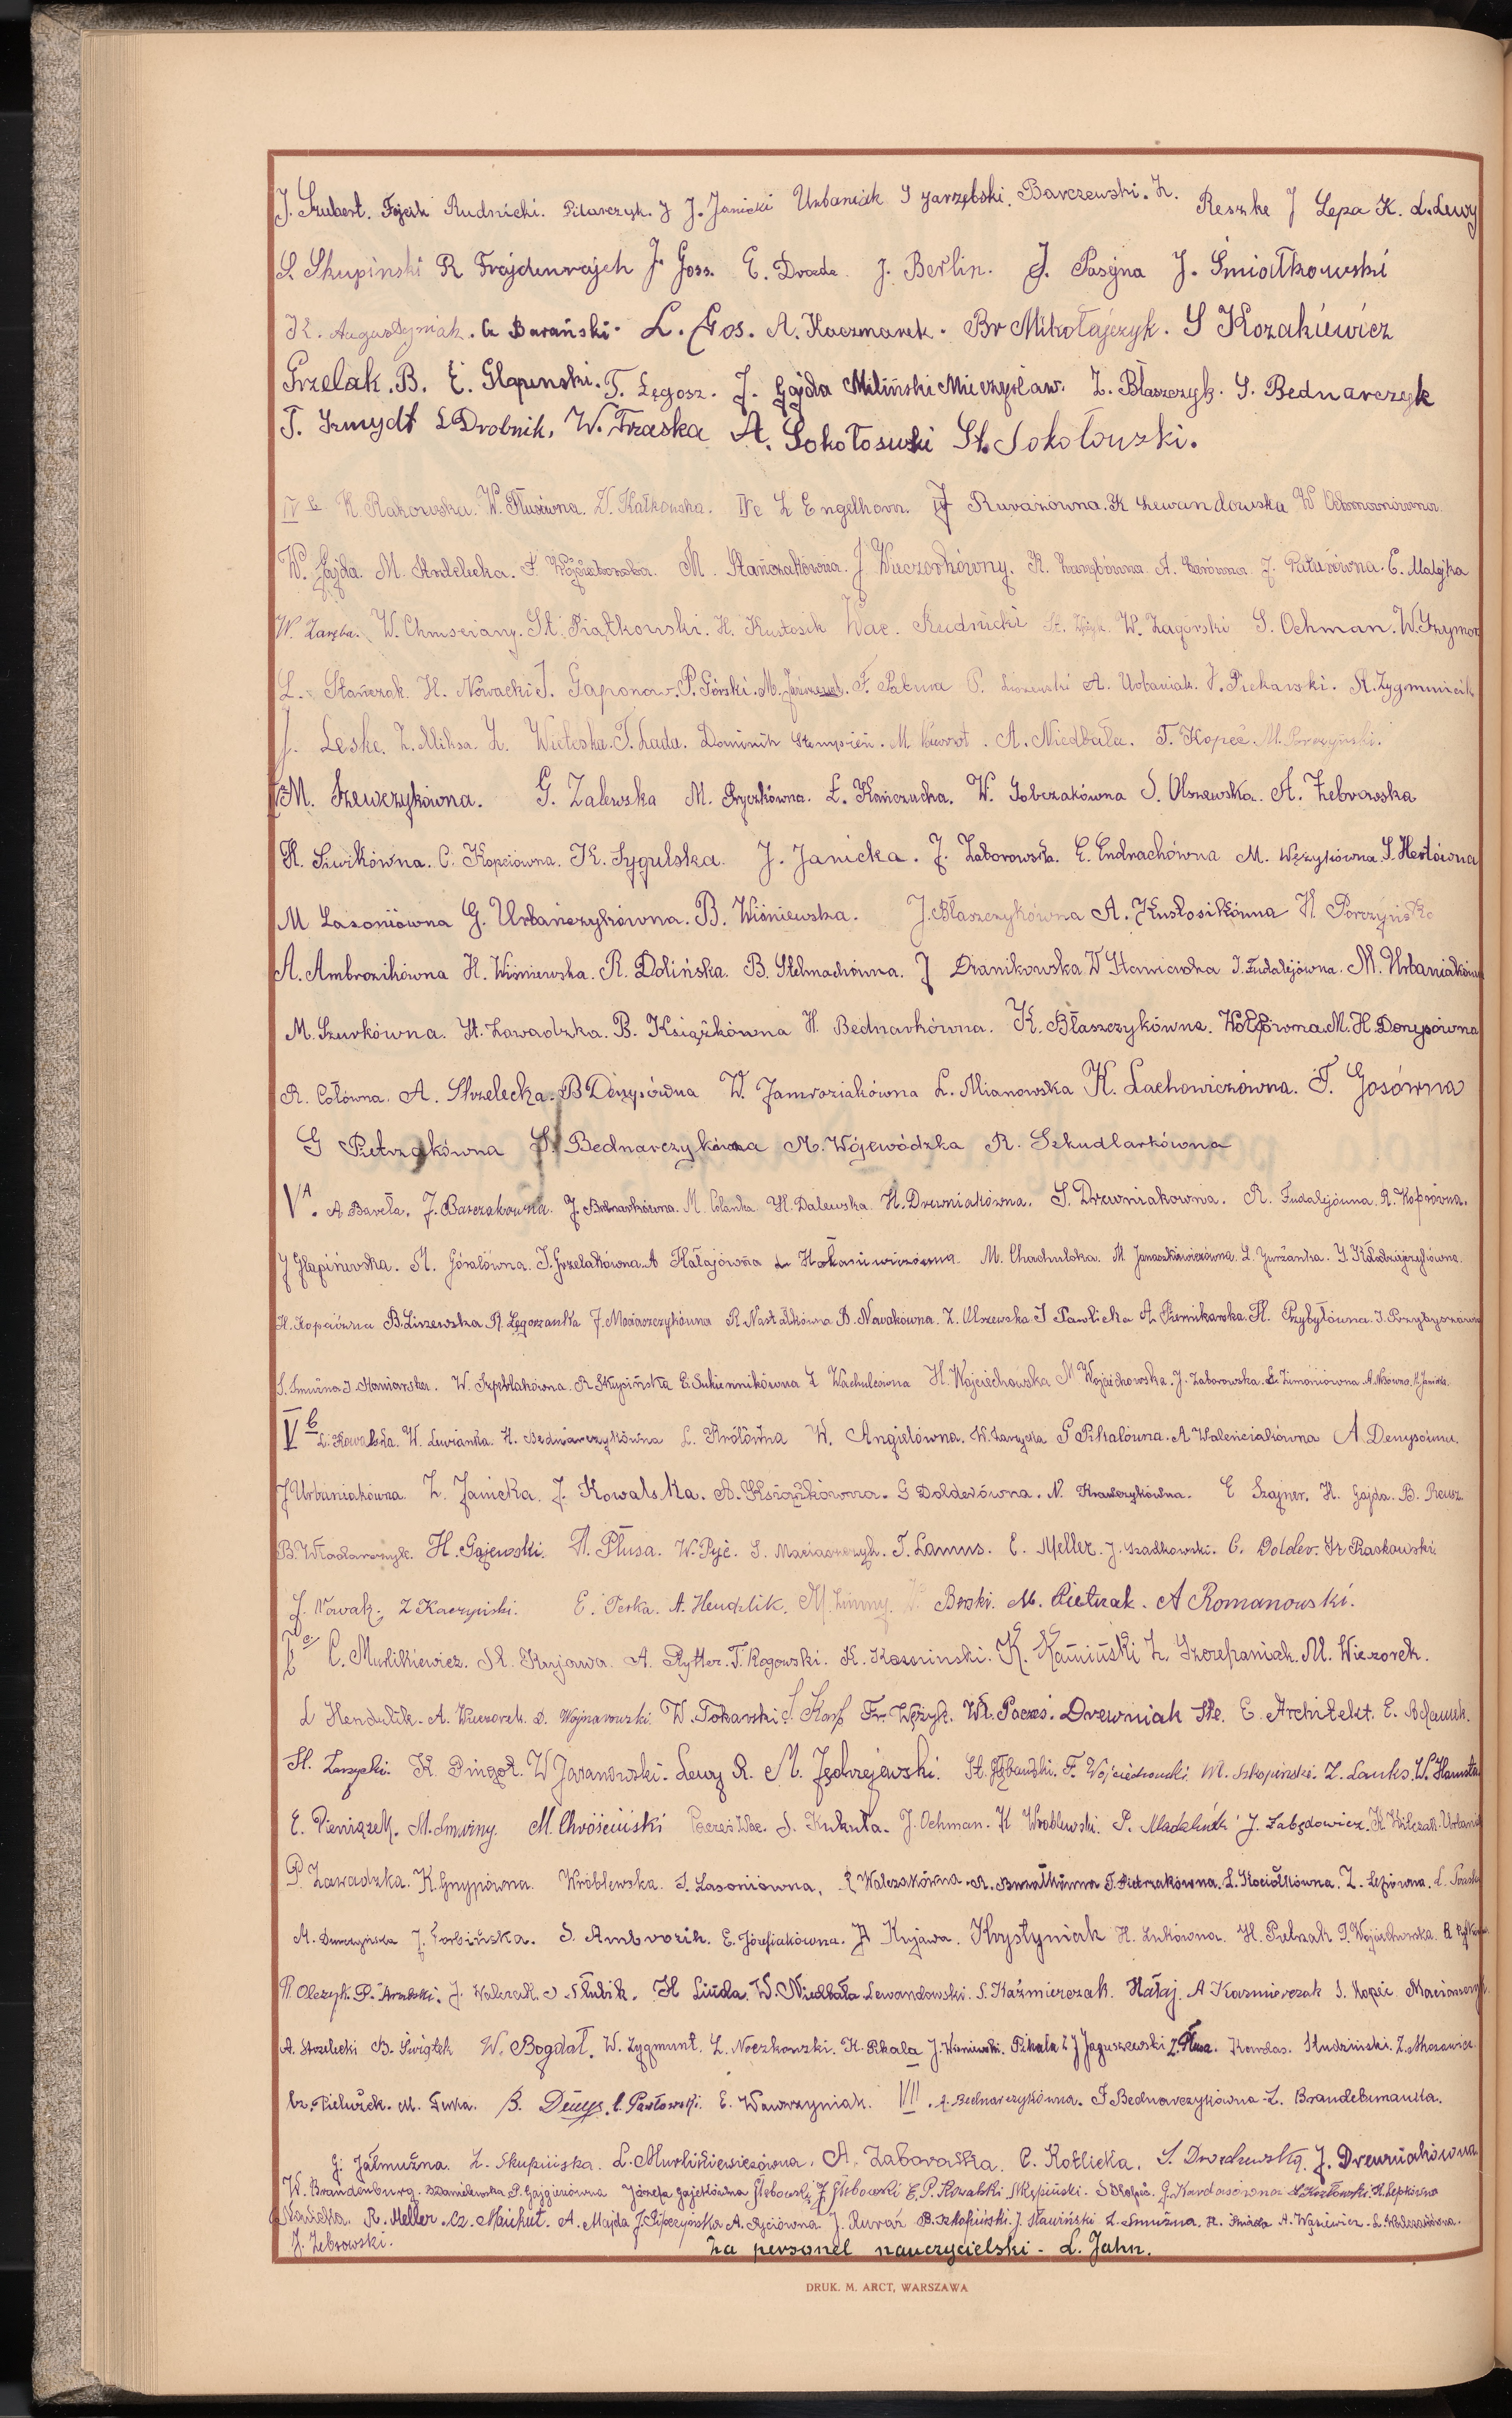 J. Szubert. Fijach Rudnicki. Pilarczyk. J J. Janicki Urbaniak S Jarzębski. Barczewski. Z. Reszke J Lepa K. L. Lewy
S. Skupinski R Frajdenrajch J. Goss. E. Drozda. J. Berlin. J. Pasyna J. Śmiałkowski
K. Augustyniak. Cz Barański. L. Gos. A. Kaczmarek. Br Mikołajczyk. S Kozakiewicz
Grzelak. B. E. Glapinski. T. Lęgosz. J. Gajda Miliński Mieczysław. Z. Błaszczyk. S. Bednarczyk
T. Szmydt L Drobnik, W. Traska A. Sokołowski St. Sokołowski.
IV b K. Rakowska. W. Płusówna. D. Kałkowska. IVc Z Engelhorn. J Ruvarówna. K Lewandowska W
W. Gajda. M. Antelecka. F. M. Stańczakówna. J Wieczorkówny. K. A. J. Patusówna. E. Matejka
W. Zaręba. W. Chmścianz. St. Piątkowski. H. Kustosik Wac. Rudnicki St. W. Zagórski S. Ochman. W. Grzymor
L. Stańczak. H. Nowacki J. Gaponow. P. Górski. M. F. Patura P. A. Urbaniak. J. Piekarski. St. Zygmuncik
J. Leske. Z. Miksa. Z. Wieteska. T. Łada. Dominik Stempień. M. A. Niedbała. T. Kopeć. M. Porczyński.
M. Szewczykówna. G. Zalewska M. Pryczkówna. E. Kańczucka. W. Sobczakówna S. Olszewska. A. Żebrowska
H. Siwikówna. C. Kopciówna. K. Sygulska. J. Janicka. J. Zaborowska. E. Endrachówna M. Wężykówna S. Hertówna
M Lasoniówna G. Urbańczykówna. B. Wiśniewska. J. Błaszczykówna A. Kustosikówna H. Porczyńska
A. Ambrozikówna H. Wiśniewska. R. Dolińska. B. Stelmachówna. J Dranikowska W Stawicka J. Fudalejówna. M. Urbaniakówna
M. Szurkówna. St. Zawadzka. B. Książkówna H. Bednarkówna. K. Błaszczykówna. Wolfówna M. H. Denysówna
R. Cołówna. A. Strzelecka. B Denysówna W. Jamroziakówna L. Mianowska K. Lachowiczówna. F. Gosówna
G Pietrzakówna S. Bednarczykówna M. Wojewódzka R. Szkudlarkówna
V A. A. Baveła. J. Barczakówna. J. Bednarkówna. M. Colanka H. Dalewska H. Drewniakówna. S. Drewniakowna. R. Fudalejówna. R. Kopsówna.
J Glapińska. M. Góralówna. J. Grzelakówna. A Hałajówna L. M. Chachulska. M. Januszkiewiczówna. L. Jurżanka. J. Kołodziejczykówna.
H. Kopciówna B. Liszewska R. Lęgoszanka J. Maciaszczykówna R. Nastałkówna B. Nowakówna. Z. Olszewska J Pawlicka A. Piernikarska. H. Przybyłówna. J. Przybyszówna
S. Smużna J. Staniawska. W. Szpeblakówna. R. Skupińska E. Sukiennikówna Z Wachulcówna H. Wojciechowska M Wojciechowska. J. Zaborowska. L. Zimoniówna A. H. Janicka.
V b L. Kowalska. W. Lewianka. H. Bednarczykówna L. Królówna W. Angielówna. W. Zarzycka G Pikalówna. A Walenciakówna A. Denysówna.
J Urbaniakówna. Z. Janicka. J. Kowalska. A. Książkówna. G Dolderówna. N. Krawczykówna. E Szajner. H. Gajda. B. Reusz.
B. Włodarczyk. H. Gajewski. A. Płusa. W. Pyć. S. Maciaszczyk. T. Lamus. E. Meller. J. Szadkowski. C. Dolder. Fr Raskowski.
J. Nowak. Z Kaczyński. E. Perka. A. Hendzlik. M. Zimny. Borski. M. Pietrzak. A Romanowski.
C. Murlikiewicz. St. Kujawa. A. Rytter. T. Rogowski. K. Kosocinski. K. Kamiński Z. Szczepaniak. M. Wieczorek.
L Hendzlik. A. Wieczorek. D. Wojnarowski. W. Tokarski. J. Karp Fr. Wężyk. Wł. Paczes. Drewniak Ste. E. Architekt. E.
St. Zarzycki. K. Pingot. W Jaranowski. Lewy R. M. Jędrzejewski. St. Głębowski. F. Wojciechowski. M. Szkopinski. Z. Lauks. W.
E. Pieniążek. M. Smviny. M. Chrościński Paczes Wac. S. Kukuła. J. Ochman. K Wróblewski. P. Madaliński J. Zabędowicz. K Wilczak. Urbaniak
P. Zawadzka. K. Gnypówna. Wróblewska. J. Lasoniówna. R Walczakówna. J. Pietrzakówna. L. Kociołkówna. Z. Lepówna. L.
M. J. Torbińska. S. Ambrozik. E. Józefiakówna. A Kujawa. Krystyniak H. Lukówna. H. Pietrzak J. Wojciechowska. R
R. Olczyk. P. Arabski. J. Walczak. J Słubik. H Linda. W. Niedbała Lewandowski. S. Kaźmierczak. Hałaj. A Kazmierczak S. Kopec
A. Strzelecki B. Świątek W. Bogdał. W. Zygmunt. Z. Noczkowski. K. Pikala J. Wiśniewski. Pikala Z J Jaguszewski Z. Płusa. Kowdas. Studziński. Z. Morawiec.
M. Ćwika. B. Denys. C. Pawłowski. E. Wawrzyniak. VII. A. Bednarczykówna. J Bednarczykówna. Z. Brandeburanka.
G. Jałmużna. Z. Skupińska. L. Murlikiewiczówna. A. Zaborowska. C. Kotlicka. S. Drodzewska. J. Drewniakówna
W. Brandenburg. B Danielewska P. Gajgierówna Józefa Gajetkówna Głebowski J. Głębowski E. P. Kowalski Skępiński. S Kolpis. G. Kardasówna S. Kozłowski. R. Lepkówna
Nawlcka. R. Meller. Cz. Naichut. A. Majda J. Piperzyńska A. Ryciówna. J. Ruvar B. Szkopiński. J. Stawiński Z. Smużna. H. A. Wąsiewicz. L. Walczakówna.
J. Żebrowski.
Za personel nauczycielski - L. Jahn.
DRUK. M. ARCT, WARSZAWA